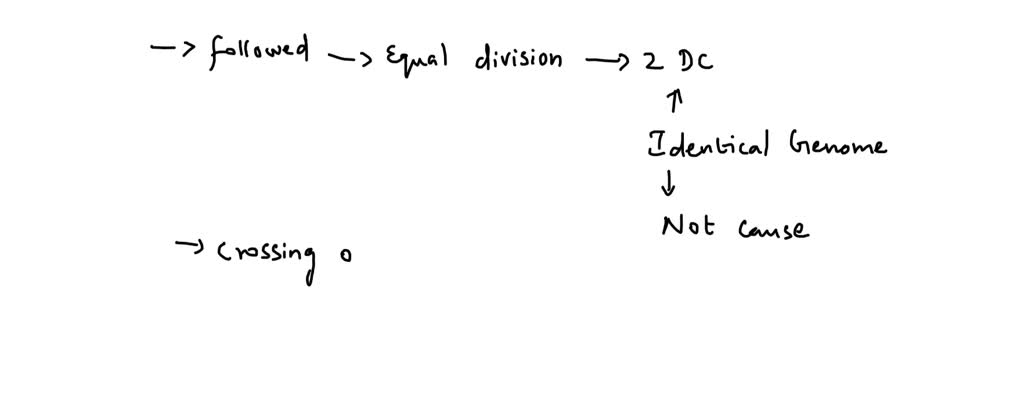 → followed → Equal division → 2 DC
↑
Identical Genome
↓
Not cause
→ crossing o